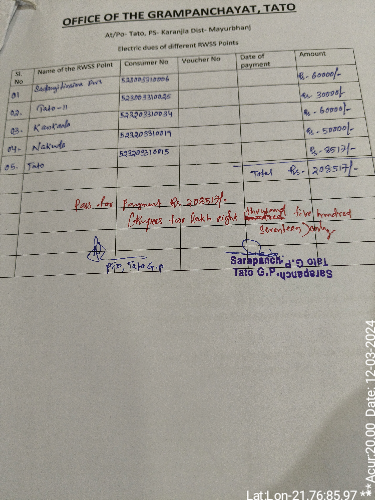 OFFICE OF THE GRAMPANCHAYAT, TATO
At/Po- Tato, PS- Karanjia Dist- Mayurbhanj
Electric dues of different RWSS Points
SL No Name of the RWSS Point Consumer No Voucher No Date of payment Amount
01 Rs. 60000/-
02. Tato-11 Rs. 30000/-
03. Rs. 60000/-
04. Nakuda Rs. 50000/-
05. Tato Rs. 8517/-
Total Rs. 208517/-
Pass for payment Rs. 208517/-
(Rupees two lakh eight thousand five hundred
seventeen) only
P.O, Tato G.P
Sarapanch
Tato G.P.
Sarapanch
Tato G.P.
Lat:Lon-21.76:85.97 ***Acur:20.00 Date: 12-03-2024